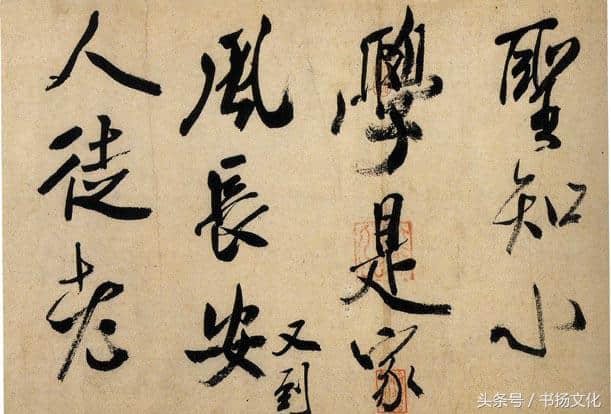 聖知小
學是家
風長安
又到
人徒老
头条号 / 书扬文化